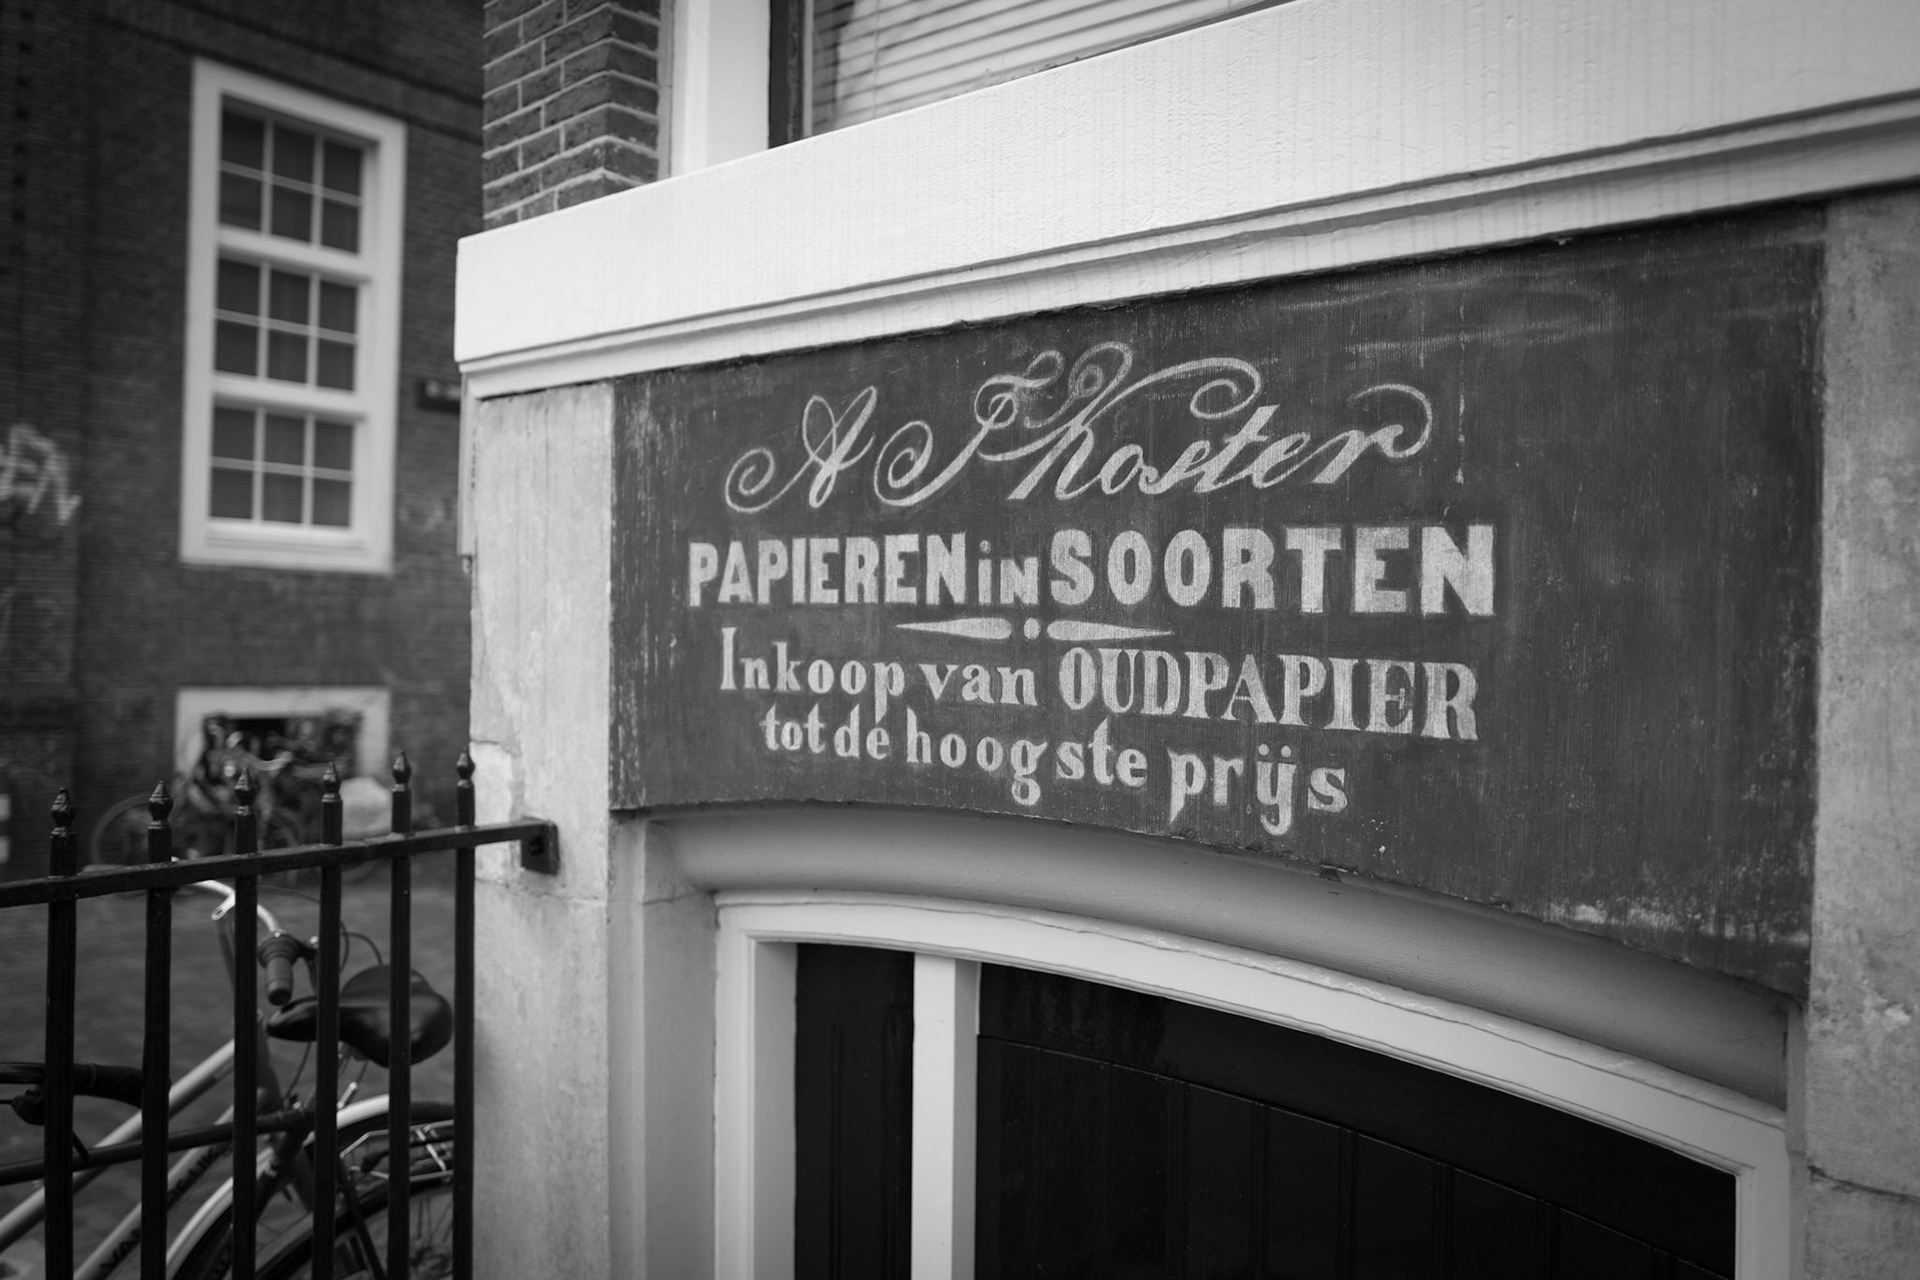 A J Koster
PAPIEREN in SOORTEN
Inkoop van OUDPAPIER
tot de hoogste prijs